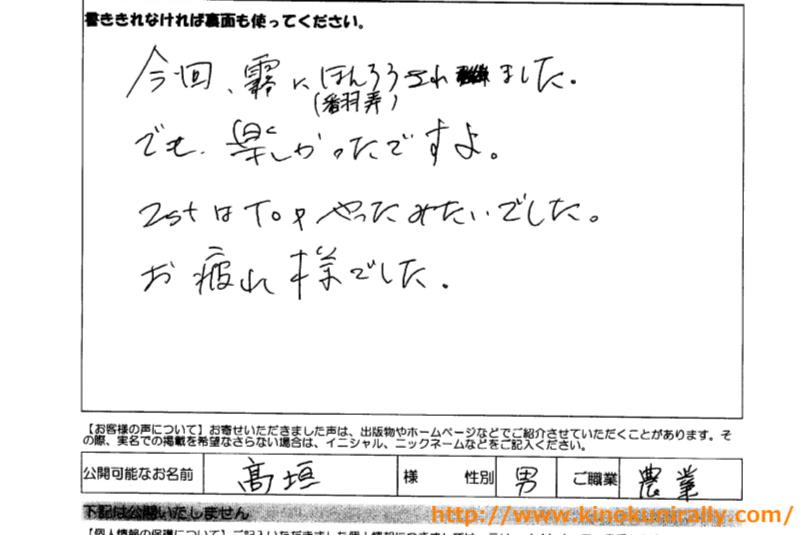 書ききれなければ裏面も使ってください。
今回、霧にほんろうされました。
(翻弄)
でも、楽しかったですよ。
2stはTopやったみたいでした。
お疲れ様でした。
【お客様の声について】お寄せいただきました声は、出版物やホームページなどでご紹介させていただくことがあります。そ
の際、実名での掲載を希望なさらない場合は、イニシャル、ニックネームなどをご記入ください。
公開可能なお名前 髙垣 様 性別 男 ご職業 農業
下記は公開いたしません
http://www.kinokunirally.com/